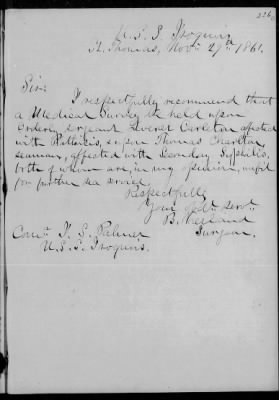 U.S.S. Iroquois
St. Thomas, Novr. 29th 1861.
Sir:
I respectfully recommend that
a Medical Survey be held upon
Orderly Sergeant Carleton affected
with Phthisis, & upon Thomas Charlton,
seaman, affected with Secondary Syphilis,
both of whom are, in my opinion, unfit
for further sea service.
Respectfully
Your Obdt. Servt.
B.
Surgeon.
Comr. J. S. Palmer
U.S.S. Iroquois.